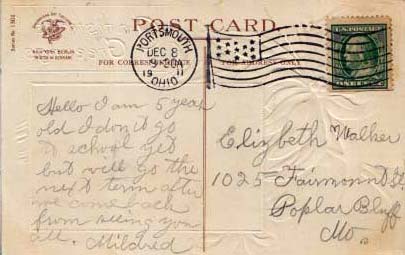 POST CARD
Series No. 1501
NEW YORK BERLIN
FOR CORRESPONDENCE
FOR ADDRESS ONLY
PORTSMOUTH
DEC 8
19 11
OHIO
U.S. POSTAGE
Hello I am 5 year
old I don't go
to school yet
but will go the
next term after
we come back
from seeing you
all. Mildred
Elizbeth Walker
1025 Fairmount St.
Poplar Bluff
Mo.